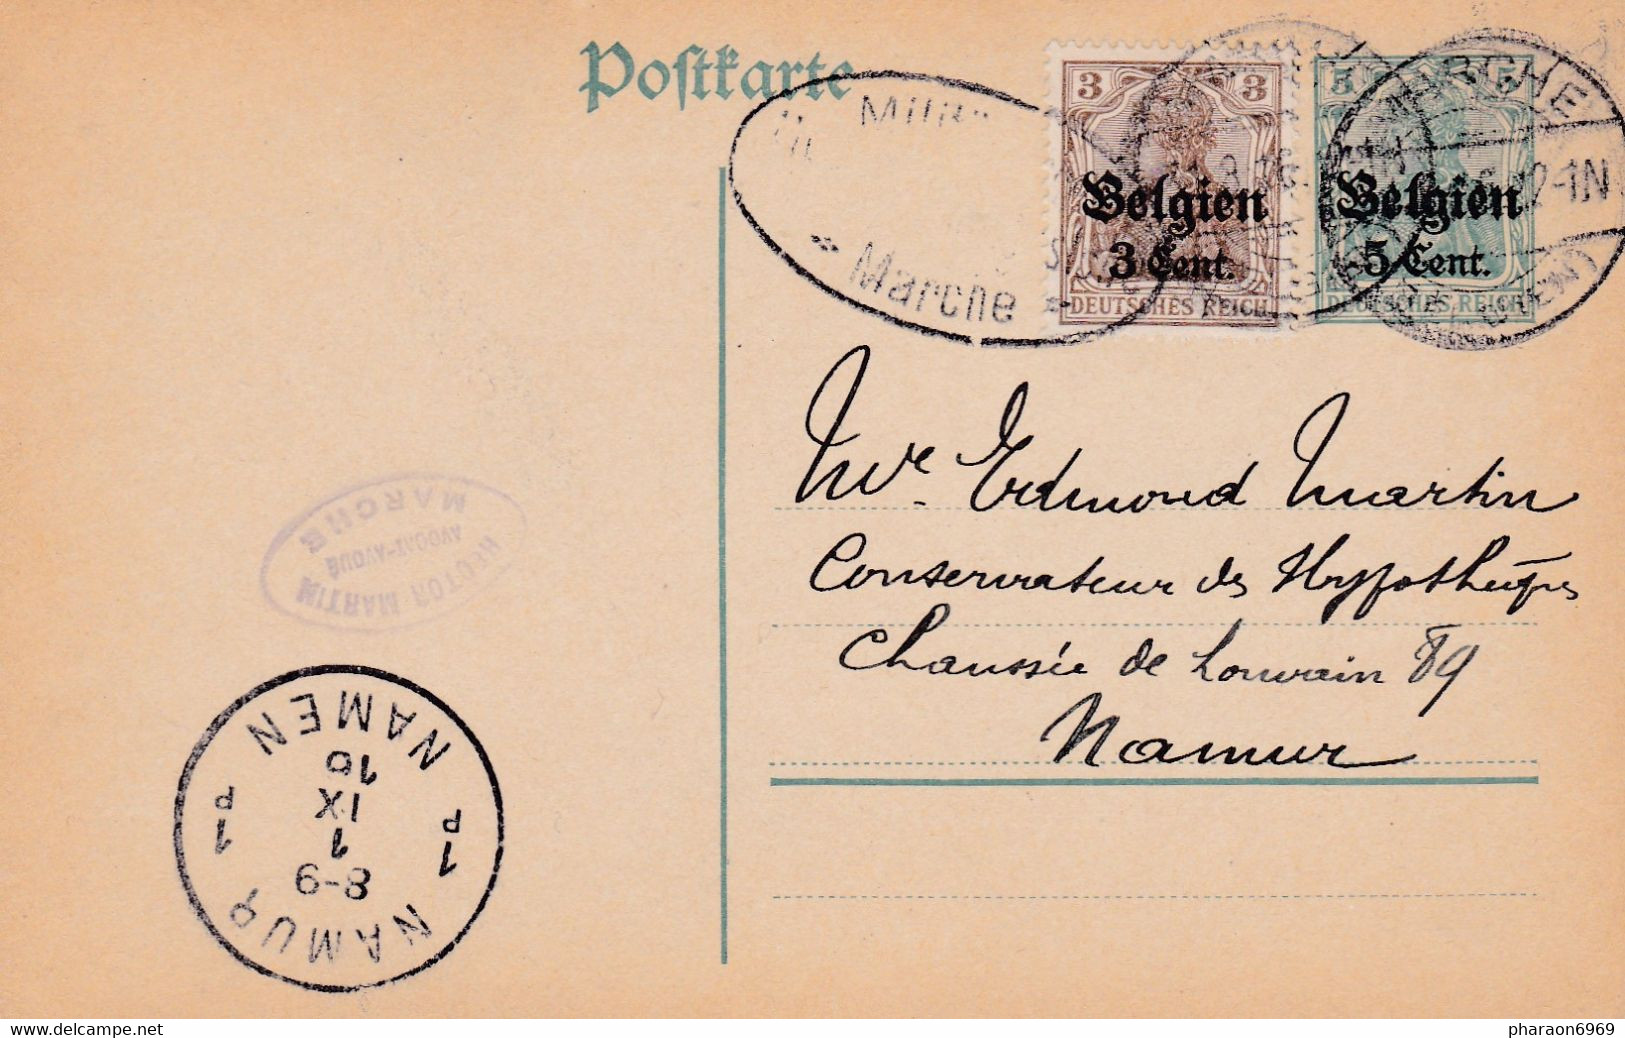 Postkarte
3 3
Belgien
3 Cent.
DEUTSCHES REICH
5 5
Belgien
5 Cent.
DEUTSCHES REICH
MARCHE
12-1N
Milit
* Marche *
Mr Edmond Martin
Conservateur des Hypothèques
Chaussée de Louvain 89
Namur
HECTOR MARTIN
AVOCAT-AVOUÉ
MARCHE
NAMUR
8-9
1
IX
16
1P 1P
NAMEN
delcampe.net
pharaon6969